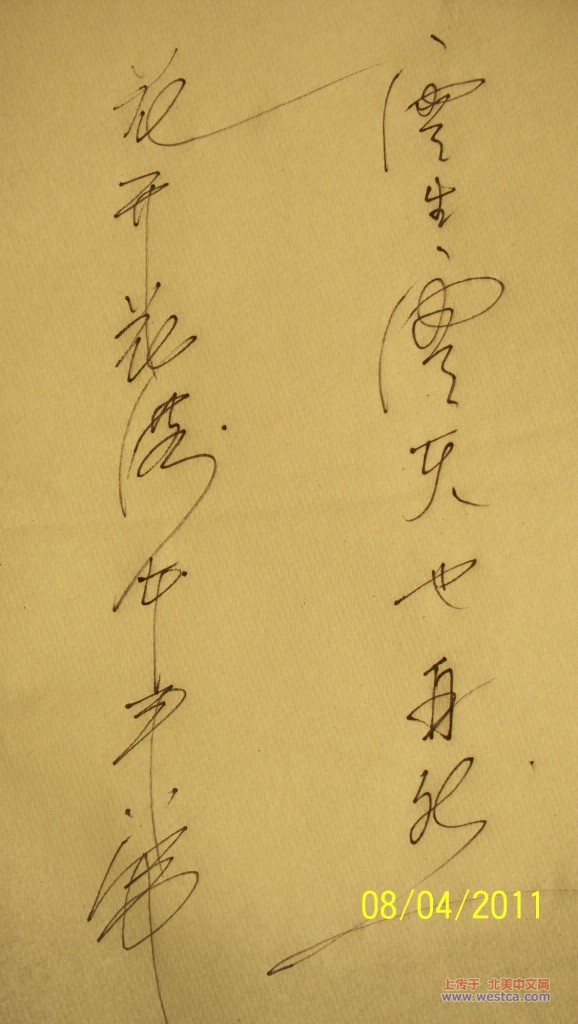 雲生雲灭也自然
花开花落
08/04/2011
上传于 北美中文网
www.westca.com